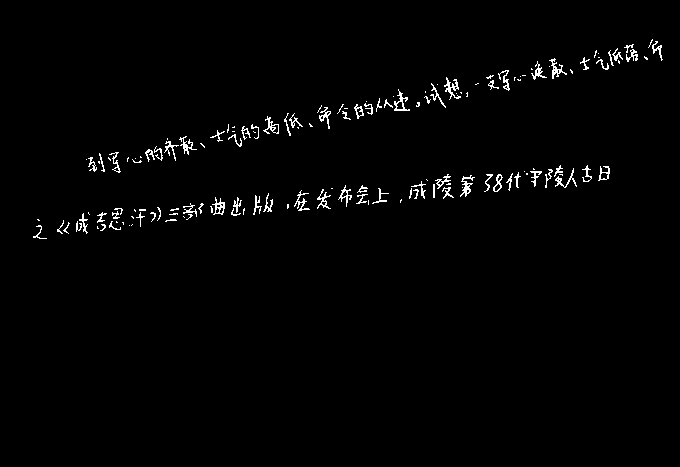 到军心的齐散、士气的高低、命令的从违。试想,一支军心涣散、士气低落、命
之《成吉思汗》三部曲出版,在发布会上,成陵第38代守陵人古日